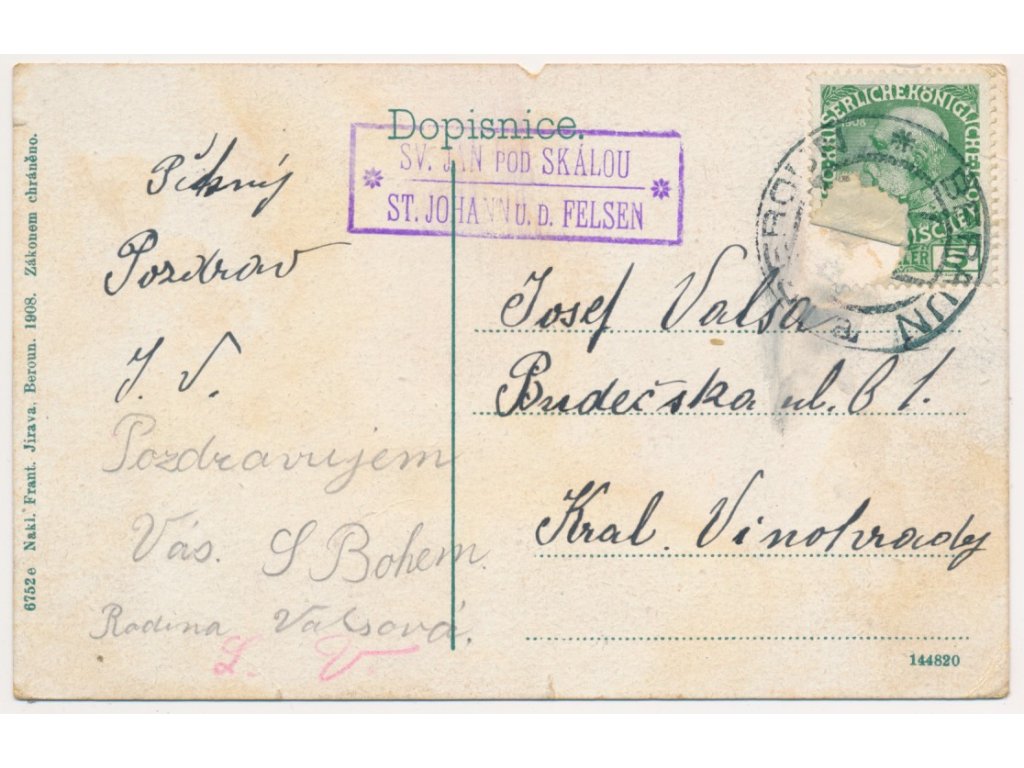 Dopisnice.
SV. JAN POD SKÁLOU
ST. JOHANN U. D. FELSEN
SERLICHEKÖNIGLICHE
1908
BEROUN
BERAUN
Pěkný
Pozdrav
J. V.
Pozdravujem
Vás. S Bohem.
Rodina Valsová.
L. V.
Josef Valsa
Budečska ul. 61.
Kral. Vinohrady
6752e Nakl. Frant. Jirava, Beroun. 1908. Zákonem chráněno.
144820